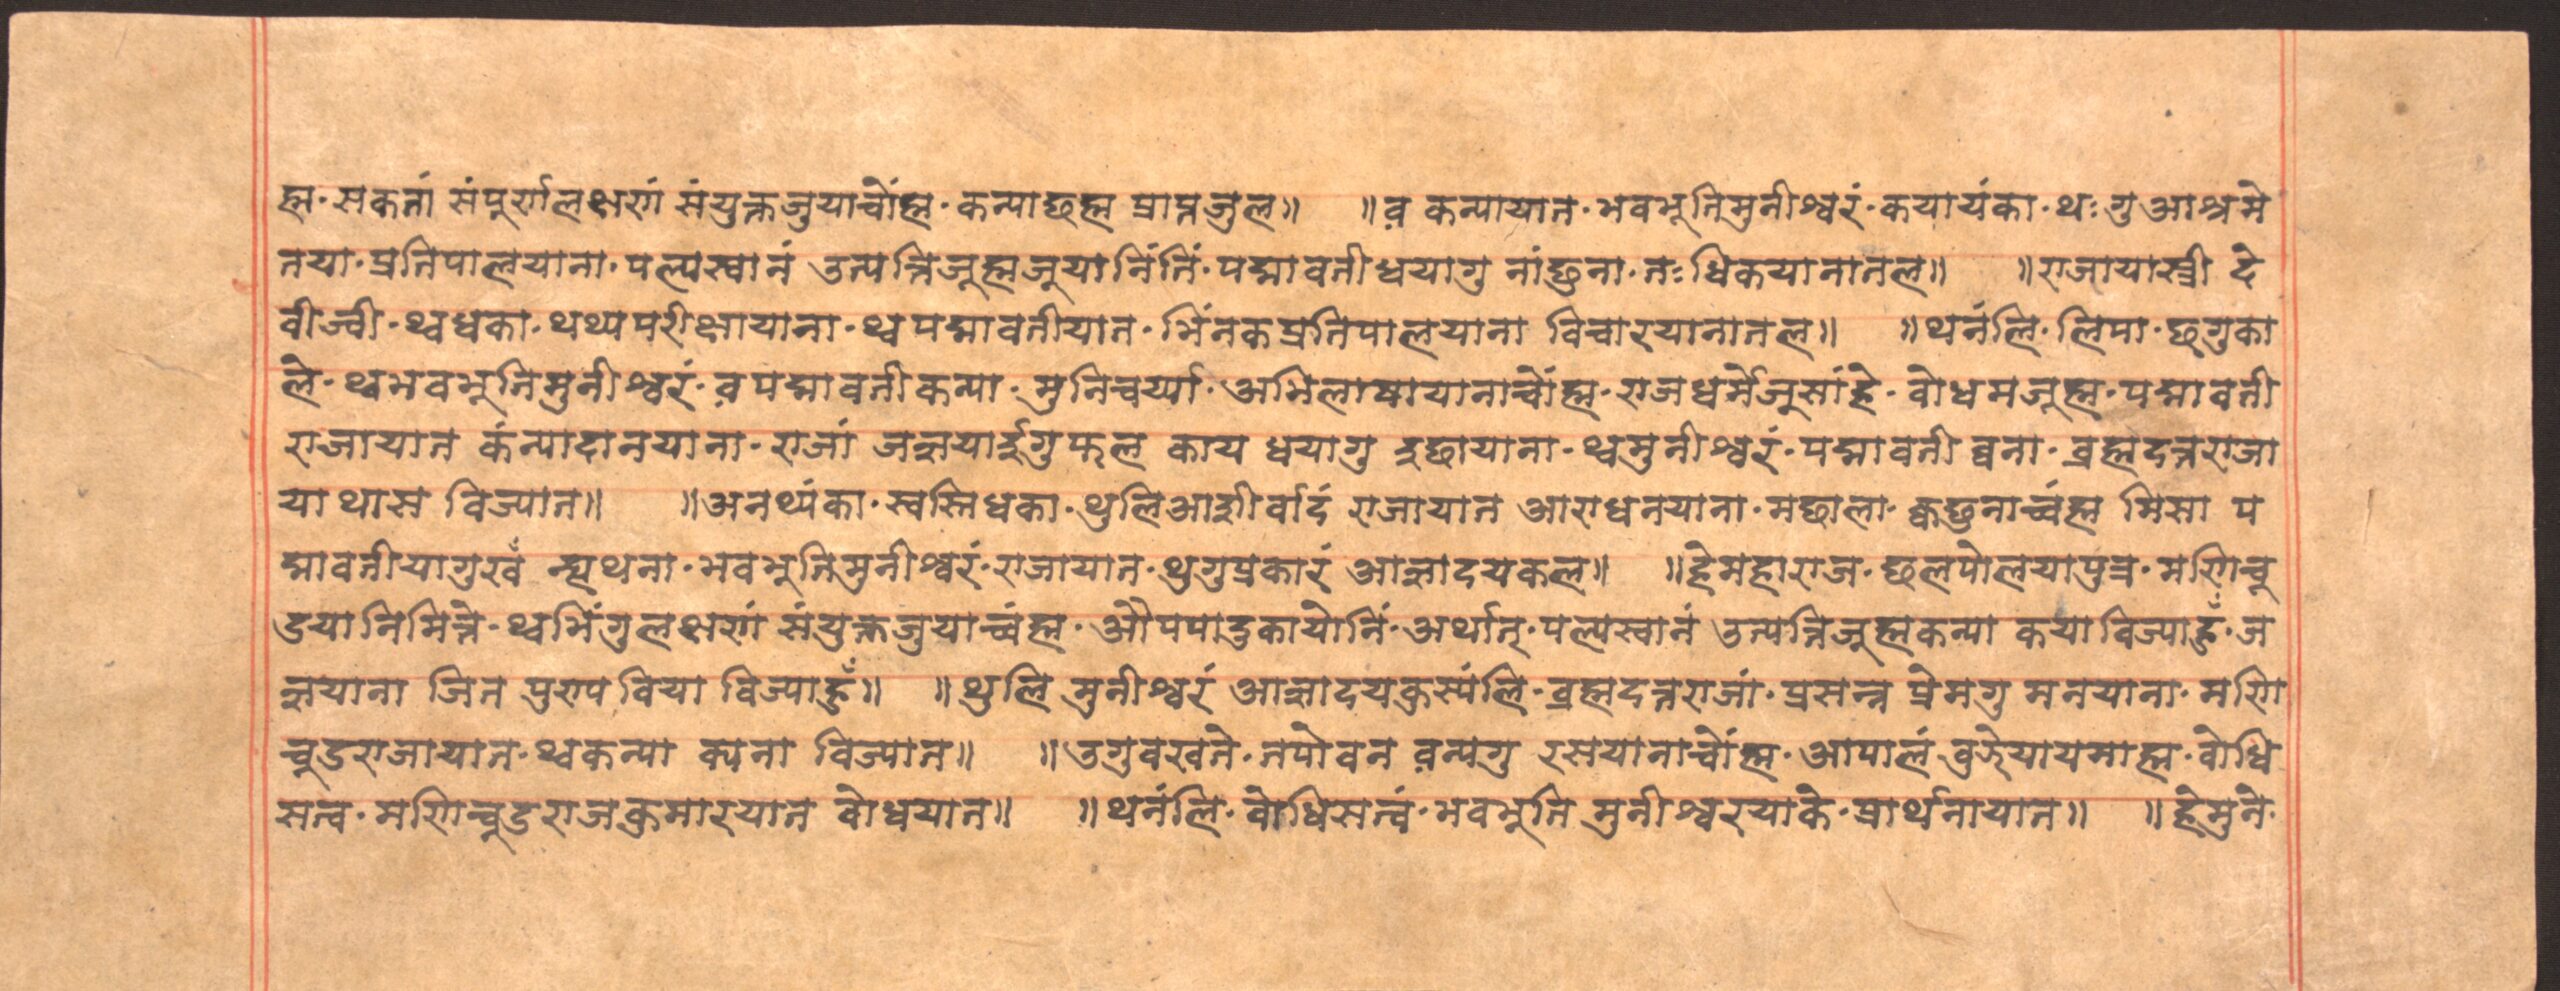 ह्म· सकतां संपूर्णलक्षणं संयुक्तजुयाच्वोंह्म· कन्याछह्म प्राप्तजुल॥ ॥व़ कन्यायात· भवभूतिमुनीश्वरं· कयायंका· थःगु आश्रमे
तया· प्रतिपालयाना· पल्यस्वानं उत्पत्तिजूह्मजुयानिंतिं· पद्मावती धयागु नांछुना· तःधिकयानातल॥ ॥राजायास्त्री दे
वीज्वी· थ्वधका· थथ्यपरीक्षायाना· थ्वपद्मावतीयात· भिंनकप्रतिपालयाना विचारयानातल॥ ॥थनंलि· लिपा· छगुका
ले· थ्वभवभूतिमुनीश्वरं· व़पद्मावतीकन्या· मुनिचर्य्या· अभिलाषायानाच्वोंह्म· राजधर्मेजुसांहे· बोधमजूह्म· पद्मावती
राजायात कंन्यादानयाना· राजां जज्ञयार्इगुफल काय धयागु इछायाना· थ्वमुनीश्वरं· पद्मावती ब्वना· ब्रह्मदत्तराजा
याथास विज्यात॥ ॥अनथ्यंका· स्वस्तिधका· थुलिआशीर्वादं राजायात आराधनयाना· मछाला· क्वछुनाच्वंह्म मिसा प
द्मावतीयागुखँ न्ह्यथना· भवभूतिमुनीश्वरं· राजायात· थुगुप्रकारं आज्ञादयकल॥ ॥हेमहाराज· छलपोलयापुत्र· मणिचू
डयानिमित्ते· थ्वभिंगुलक्षणं संयुक्तजुयाच्वंह्म· औपपादुकायोनिं· अर्थात्· पल्यस्वानं उत्पत्तिजूह्मकन्या कयाविज्याहुँ· ज
ज्ञयाना जित पुरुपविया विज्याहुँ॥ ॥थुलि मुनीश्वरं आज्ञादयकुस्यंलि· ब्रह्मदत्तराजां· प्रसन्न प्रेमगु मनयाना· मणि
चूडराजायात· थ्वकन्या क्यना विज्यात॥ ॥उगुवखते· तपोवन व़न्यगु रसयानाच्वोंह्म· आपालं वुझेयायमाह्म· बोधि
सत्व· मणिचूडराजकुमारयात बोधयात॥ ॥थनंलि· बोधिसत्वं· भवभूति मुनीश्वरयाके· प्रार्थनायात॥ ॥हेमुने·